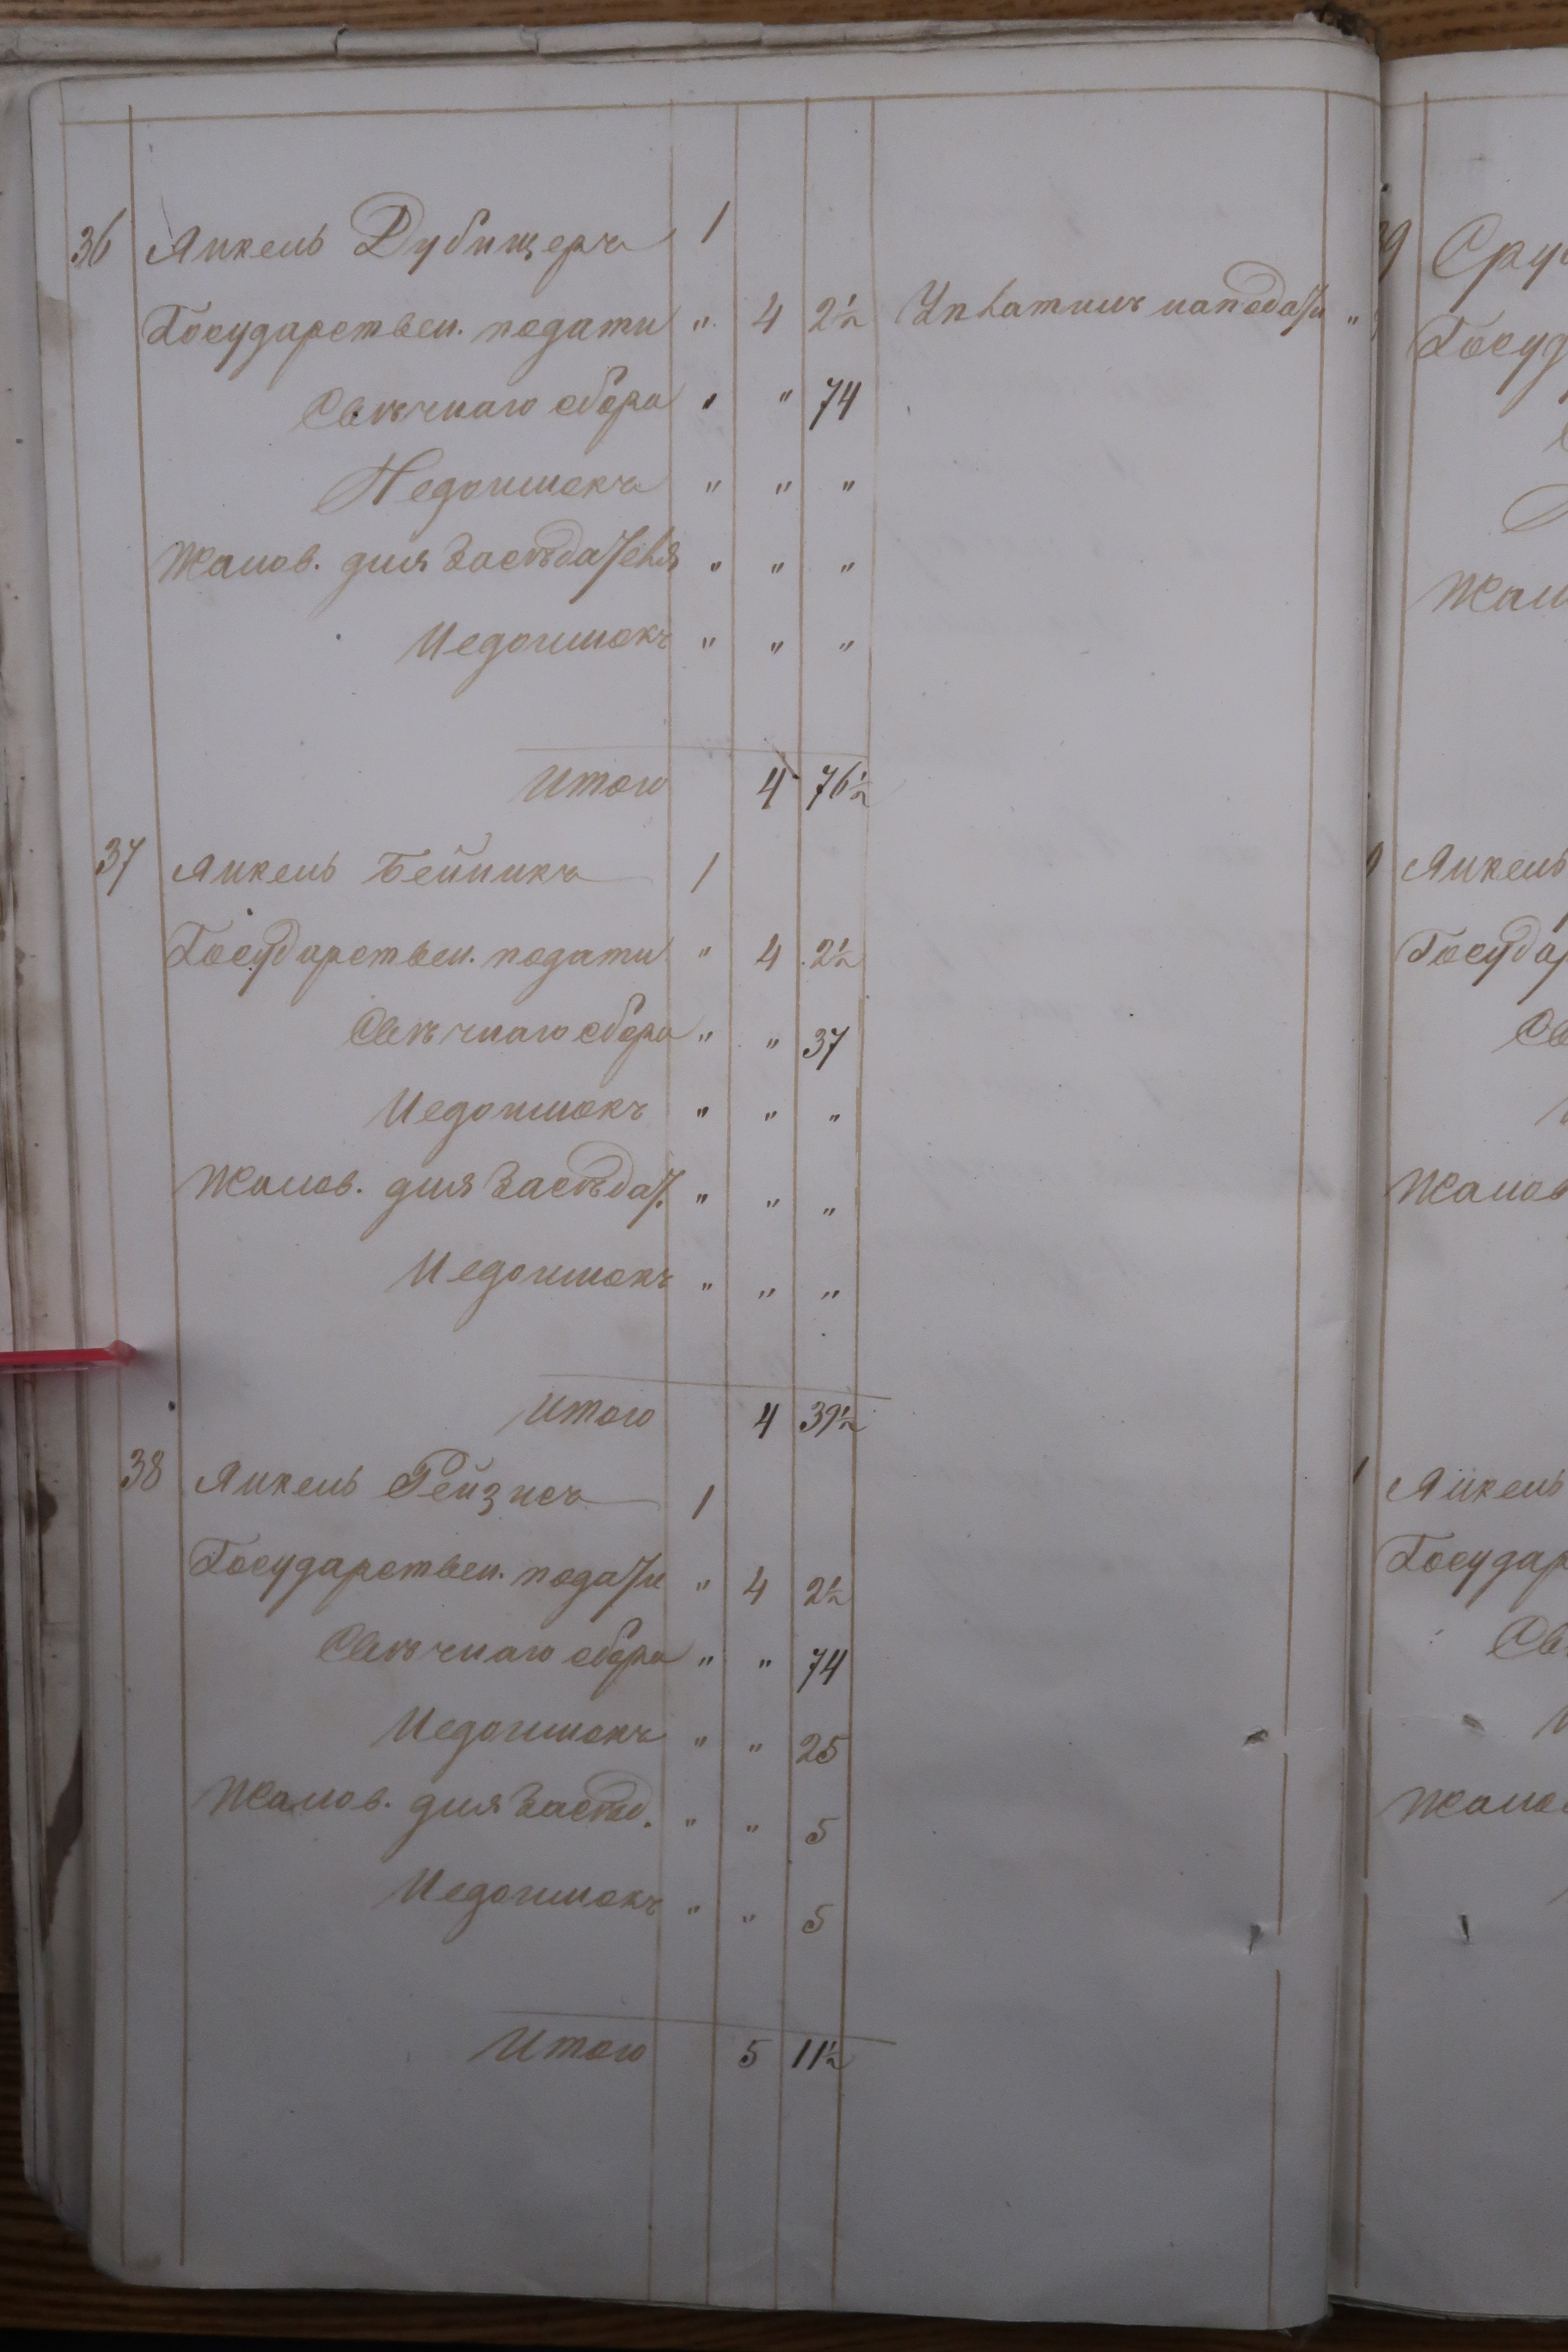 36 Янкель Дубищеръ 1
Государствен. подати " 4 2½ Уплатилъ на подати "
Свѣчнаго сбора " " 74
Недоимокъ " " "
Жалов. для Засѣдателя " " "
Недоимокъ " " "
Итого 4 76½
37 Янкель Бейникъ 1
Государствен. подати " 4 2½
Свѣчнаго сбора " " 37
Недоимокъ " " "
Жалов. для Засѣдат. " " "
Недоимокъ " " "
Итого 4 39½
38 Янкель Рейзисъ 1
Государствен. подати " 4 2½
Свѣчнаго сбора " " 74
Недоимокъ " " 25
Жалов. для Засѣд. " " 5
Недоимокъ " " 5
Итого 5 11½
Сру
Госуд
Жал
Янкель
Государ
Св
Жалов
Янкель
Государ
Св
Жалов